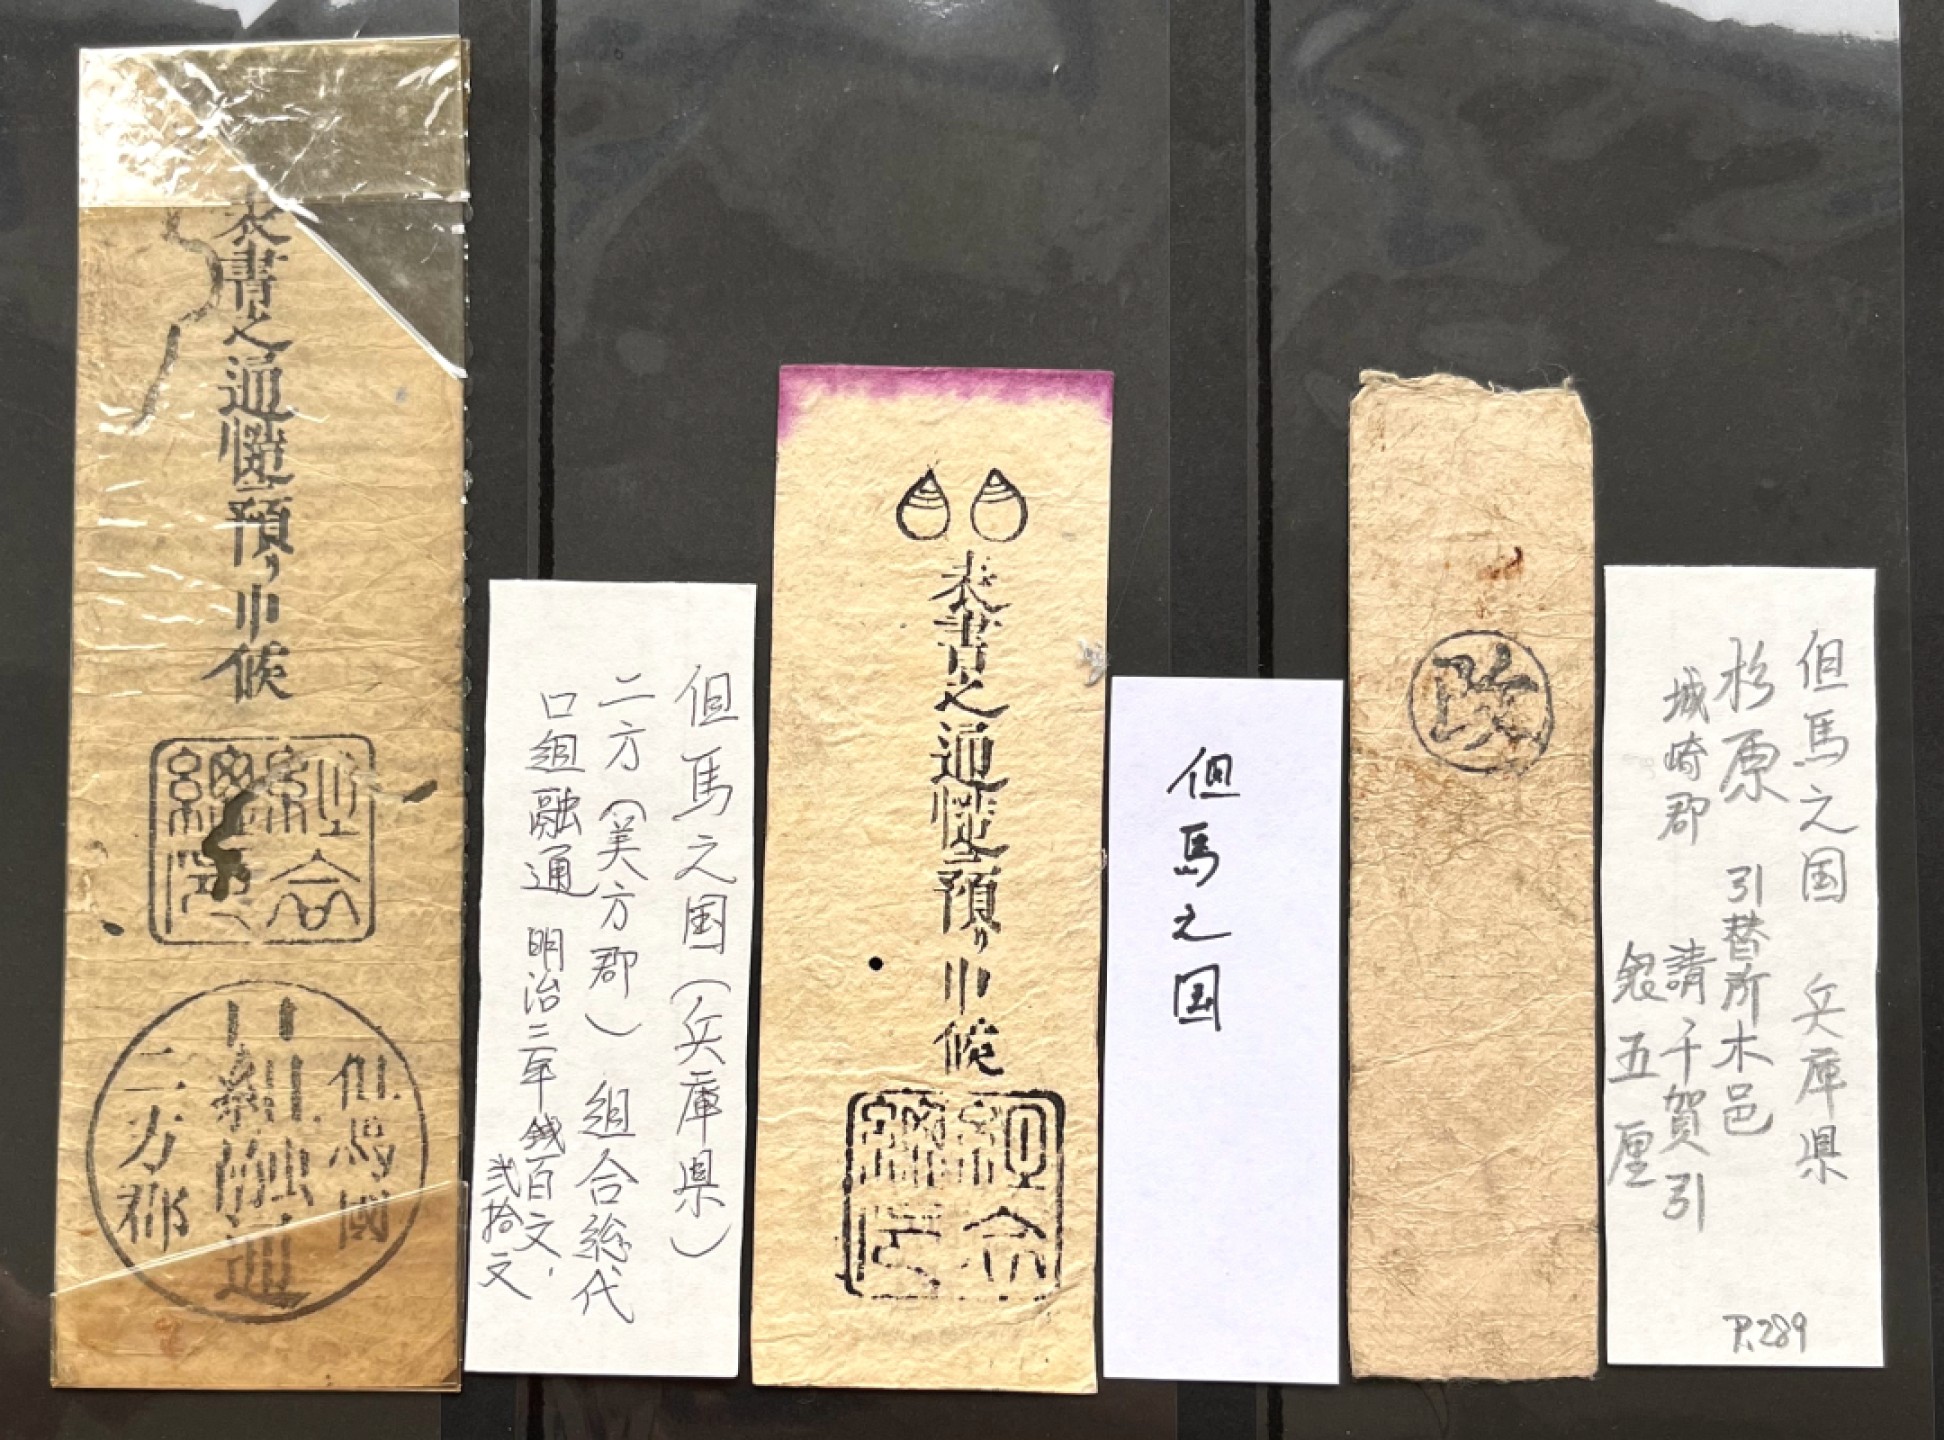 表書之通慥預り申候
但馬國
口組融通
二方郡
但馬之国(兵庫県)
二方(美方郡) 組合総代
口組融通 明治三年 銭百文、
弐拾文
表書之通慥預り申候
但馬之国
改
但馬之国 兵庫県
杉原 引替所木邑
城崎郡 請千賀引
銀五厘
P.289